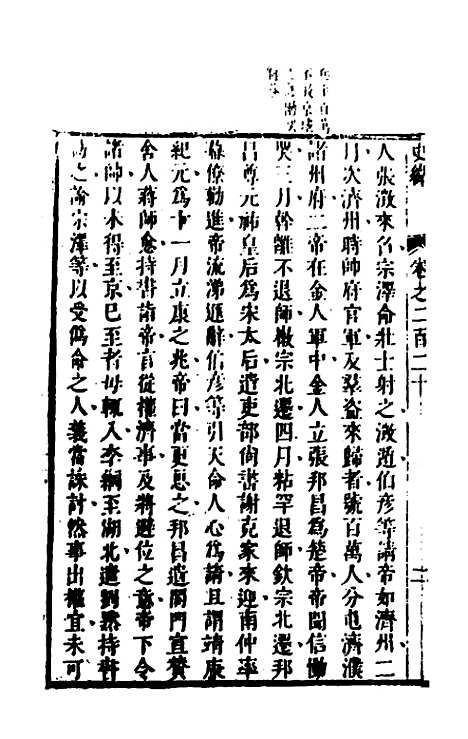 史緯 卷之二百二十 二
人張澂來召宗澤命壯士射之澂遁伯彥等請帝如濟州二
月次濟州時帥府官軍及羣盜來歸者號百萬人分屯濟濮
諸州府二帝在金人軍中金人立張邦昌爲楚帝帝聞信慟
哭三月幹離不退師徽宗北遷四月粘罕退師欽宗北遷邦
昌尊元祐皇后爲宋太后遣吏部尚書謝克家來迎南仲率
幕僚勸進帝流涕遜辭伯彥等引天命人心爲請且謂靖康
紀元爲十一月立康之兆帝曰當更思之邦昌遣閤門宣贊
舍人蔣師愈持書詣帝言從權濟事及將避位之意帝下令
諸帥以未得至京巳至者毋輒入李綱至湖北遣劉默持書
之諭宗澤等以受僞命之人義當誅討然事出權宜未可